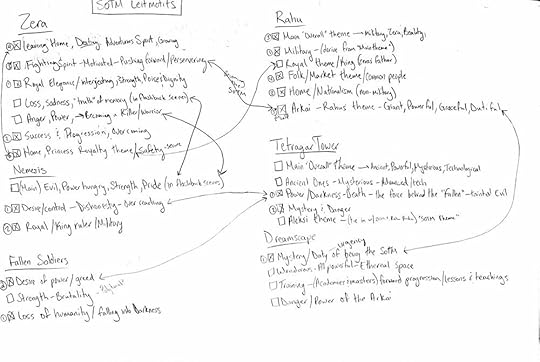 SOTM Leitmotifs
Zera
Leaving Home, Destiny, Adventurous Spirit, Growing
Fighting Spirit - Motivated - Pushing forward / Perservering
Royal Elegance / interjecting, Strength, Poise, Dignity
Loss, Sadness, "truth" of memory (in flashback scenes)
Anger, Power, → Becoming a Killer/Warrior
Success & Progression, overcoming
Home, Princess Royalty theme / safety - secure
Nemesis
(Main) Evil, Power hungry, Strength, Pride (in flashback scenes)
Desire/control - Dishonesty - Over reaching
Royal / King ruler / Military
Fallen Soldiers
Desire of power / greed
Strength - Brutality
Loss of humanity / falling into Darkness
Rahu
Main "Overall" theme → Military, Zera, Brutality,
Military - (derive from "Main theme")
Royal theme / King
Folk / Market theme / common people
Home / Nationalism (non-military)
Arkai - Rahus theme - Giant, Powerful, Graceful, Dutiful
Tetragar Tower
Main "Overall" theme → Ancient, Powerful, Mysterious, Technological
Ancient Ones - Mysterious - Advanced / tech
Power / Darkness - Death - the force behind the "Fallen" - twisted Evil
Mystery & Danger
Aleksi theme - "SOTM theme"
Dreamscape
urgency
Mystery / Duty of being the SOTMs
Wondrous - All powerful - Ethereal Space
Training - (Academic/masters) forward progression / lessons & teachings
Danger / Power of the Arkai